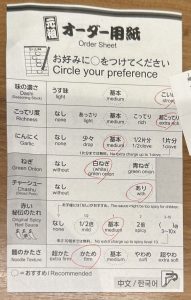 元祖 オーダー用紙
Order Sheet
お好みに○をつけてください
Circle your preference
味の濃さ うす味 基本 こい味
Dashi light medium strong
こってり度 なし あっさり 基本 こってり 超こってり
Richness none light medium rich extra rich
にんにく なし 少々 基本 1/2片分 1片分
Garlic none a little medium 1/2 clove 1 clove
ねぎ なし 白ねぎ 青ねぎ
Green Onion without (white) green onion
チャーシュー なし あり
Chashu without with
赤い秘伝のたれ なし 1/2 基本 2倍
Original Spicy Red Sauce none 1/2 medium
麺のかたさ 超かた かため 基本 やわめ 超やわ
Noodle Texture extra firm firm medium soft extra soft
○=おすすめ / Recommended
中文/한국어